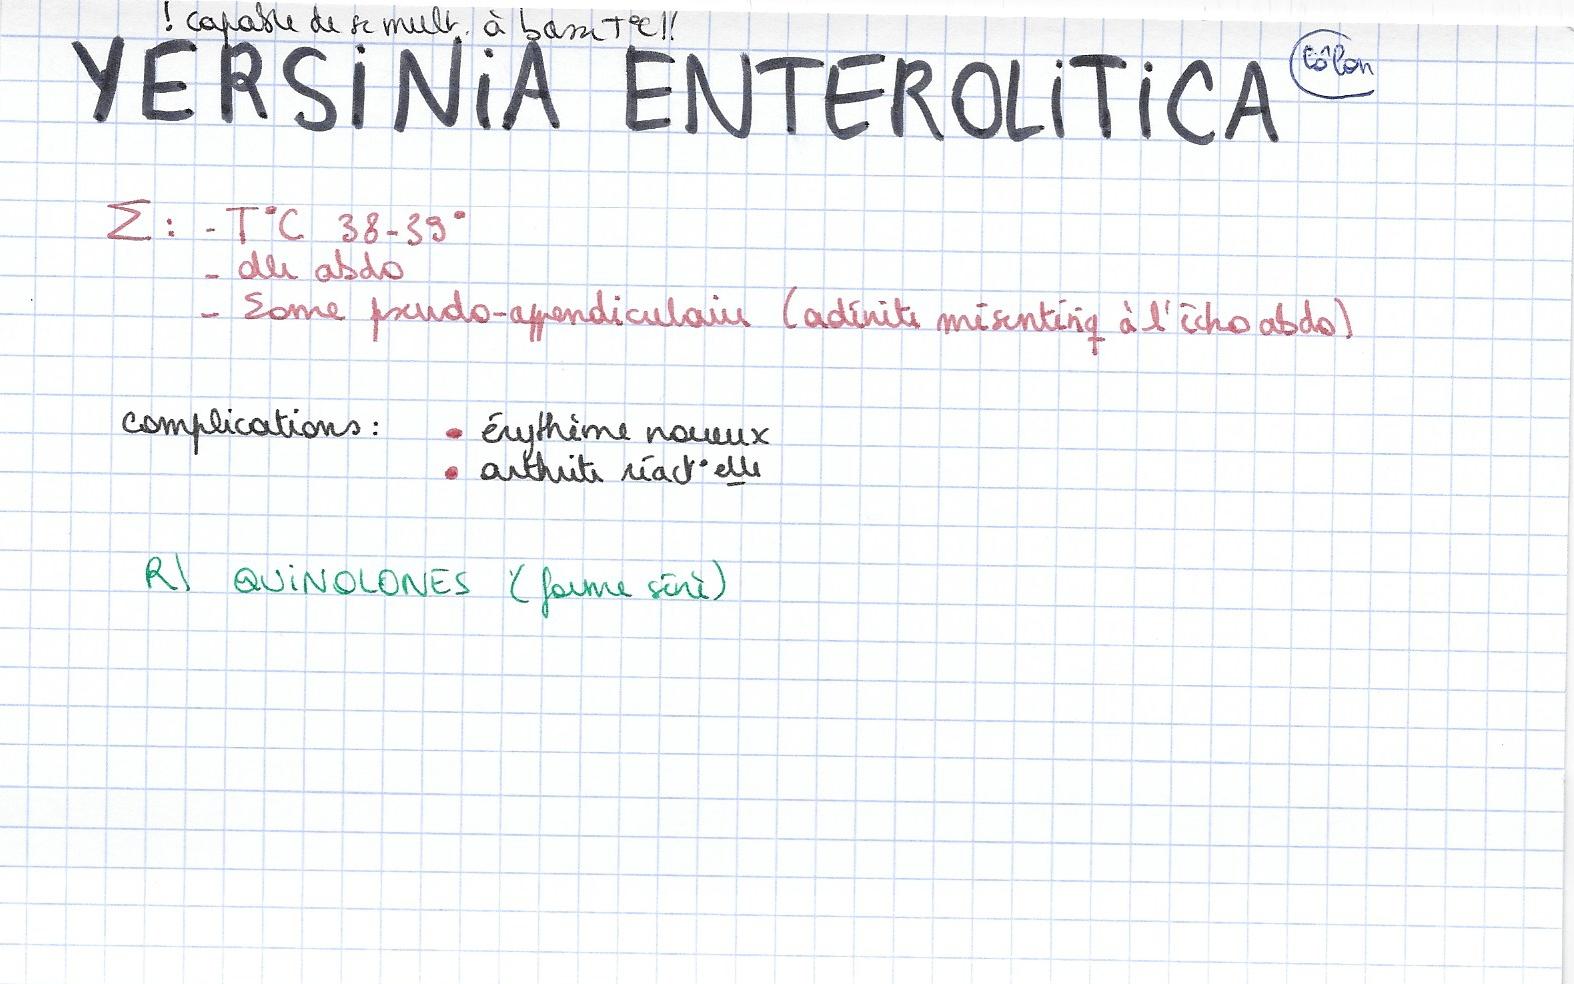 ! capable de se mult. à basse T°C!!
YERSiNiA ENTEROLiTiCA côlon
Σ: - T°C 38-39°
- dlr abdo
- Σome pseudo-appendiculaire (adénite mésentériq à l'écho abdo)
complications: • érythème noueux
• arthrite réact°elle
R) QUiNOLONES (forme sévè)